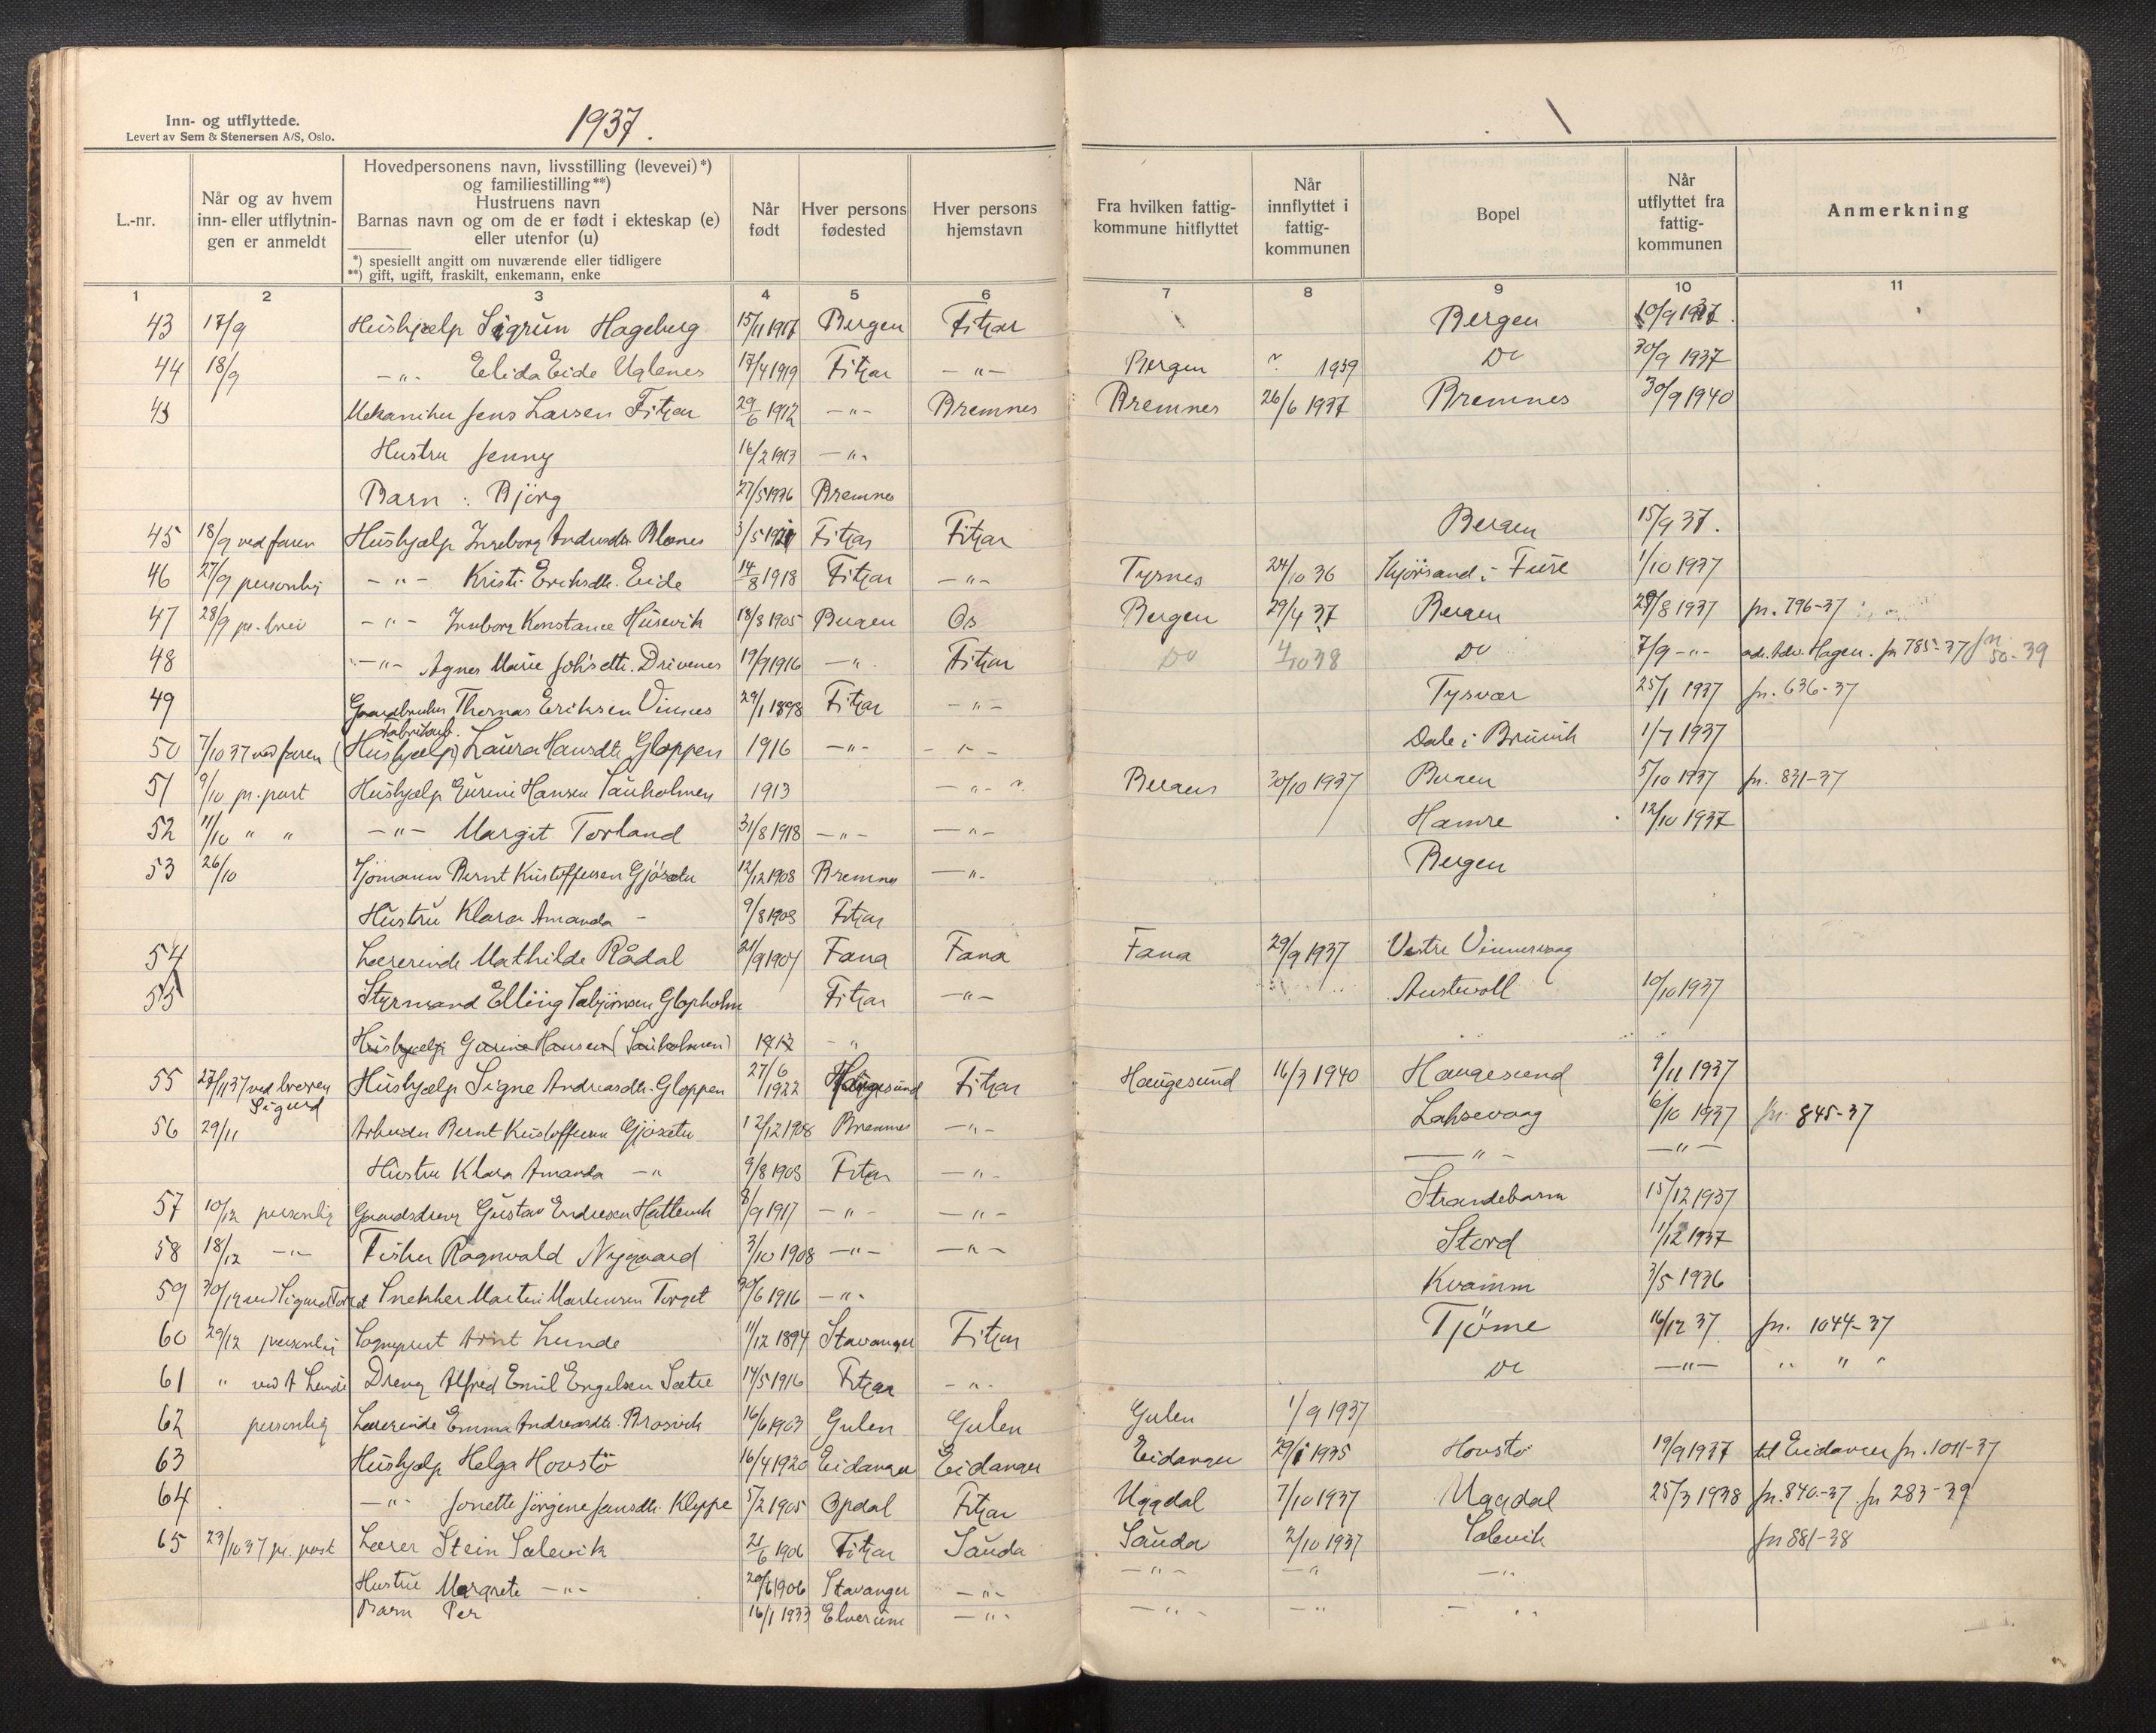 Inn- og utflyttede.
Levert av Sem & Stenersen A/S, Oslo.
1937.
L.-nr.
Når og av hvem
inn- eller utflytnin-
gen er anmeldt
Hovedpersonens navn, livsstilling (levevei) *)
og familiestilling **)
Hustruens navn
Barnas navn og om de er født i ekteskap (e)
eller utenfor (u)
*) spesiellt angitt om nuværende eller tidligere
**) gift, ugift, fraskilt, enkemann, enke
Når
født
Hver persons
fødested
Hver persons
hjemstavn
Fra hvilken fattig-
kommune hitflyttet
Når
innflyttet i
fattig-
kommunen
Bopel
Når
utflyttet fra
fattig-
kommunen
Anmerkning
1 2 3 4 5 6 7 8 9 10 11
43 17/9 Hushjælp Sigrun Hageberg 15/11 1917 Bergen Fitjar Bergen 10/9 1937.
44 18/9 -"- Elida Eide Uglenes 17/4 1919 Fitjar -"- Bergen ? 1939 Do 30/9 1937
45 Mekaniker Jens Larsen Fitjar 29/6 1912 -"- Bremnes Bremnes 26/6 1937 Bremnes 30/9 1940
Hustru Jenny 16/2 1913 -"-
Barn : Björg 27/5 1936 Bremnes
45 18/9 ved faren Hushjælp Ingeborg Andreasdtr. Blænes 3/5 1921 Fitjar Fitjar Bergen 15/9 37.
46 27/9 personlig -"- Kristi Eriksdtr. Eide 14/8 1918 Fitjar -"- Tysnes 24/10 36 i Fure 1/10 1937
47 28/9 pr. brev -"- Ingborg Konstance Husevik 18/8 1905 Bergen Os Bergen 29/4 37 Bergen 28/8 1937 jn. 796-37
48 -"- Agnes Marie Joh's dtr. Drivenes 19/9 1916 -"- Fitjar Do 4/10 38 Do 7/9 -"- adr. Adv. Hagen. jn 785-37 jn 50-39
49 Gaardbruker Thomas Eriksen Vinnes 29/1 1898 Fitjar -"- Tysvær 25/1 1937 jn. 636-37
Fabrikarb.
50 7/10 37 ved faren (Hushjælp) Laura Hansdtr. Gloppen 1916 -"- -"- Dale i Bruvik 1/7 1937
51 9/10 pr. post Hushjælp Gurine Hansen Sauholmen 1913 -"- Bergen 30/10 1937 Bergen 5/10 1937 jn. 831-37
52 11/10 " " -"- Margit Torland 31/8 1918 -"- -"- Hamre 12/10 1937
53 26/10 Sjömann Bernt Kristoffersen Gjøsæter 12/12 1908 Bremnes -"- Bergen
Hustru Klara Amanda - 9/8 1903 Fitjar
54 Lærerinde Mathilde Rådal 21/9 1907 Fana Fana Fana 29/9 1937 Vestre Vinnesvaag
55 Styrmand Elling Salbjörnsen Glopholm Fitjar -"- Austevoll 10/10 1937
Hushjælp Gurine Hansen (Sauholmen) 1913 -"
55 27/11 37 ved broren Sigurd Hushjælp Signe Andreasdtr. Gloppen 27/6 1922 Haugesund Fitjar Haugesund 16/3 1940 Haugesund 9/11 1937
56 29/11 Arbeider Bernt Kristoffersen Gjøsæter 12/12 1908 Bremnes -"- Laksevaag 6/10 1937 jn. 845-37
Hustru Klara Amanda -" 9/8 1903 Fitjar -"- -"- -"-
57 10/12 personlig Gaardsdreng Gustav Endresen Hattevik 8/9 1917 -"- -"- Strandebarm 15/12 1937
58 18/12 -"- Fisker Ragnvald Nygaard 3/10 1908 -"- -"- Stord 11/12 1937
59 30/12 ved Sigurd Torget Snekker Martin Martinsen Torget 30/6 1916 -"- Kvamm 3/5 1936
60 29/12 personlig Sogneprest Arnt Lunde 11/12 1894 Stavanger Fitjar Tjöme 16/12 37 jn. 1044-37
61 " ved A Lunde Dreng Alfred Emil Engelsen Sætre 14/5 1916 Fitjar -"- Do -"- " " "
62 personlig Lærerinde Emma Andreasdtr. Brosvik 16/6 1903 Gulen Gulen Gulen 1/9 1937
63 Hushjælp Helga Hovstö 16/4 1920 Eidanger Eidanger Eidanger 29/1 1935 Hovstö 19/9 1937 til Eidanger jn. 1011-37
64 -"- Jonette Jörgine Jansdtr. Kleppe 5/2 1905 Opdal Fitjar Uggdal 7/10 1937 Uggdal 25/3 1938 jn. 840-37 jn 283-39
65 23/10 37 pr. post Lærer Stein Sælevik 21/6 1906 Fitjar Sauda Sauda 2/10 1937 Sælevik jn 881-38
Hustru Margrete -"- 20/6 1906 Stavanger -"- -"- -" -"-
Barn Per 16/1 1933 Elverum -"- -"- -"- -"-